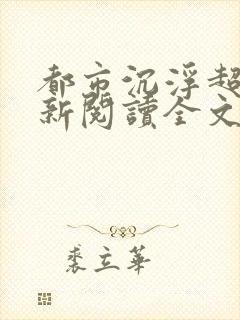 都市沉浮超
新閱讀全文
裘立華